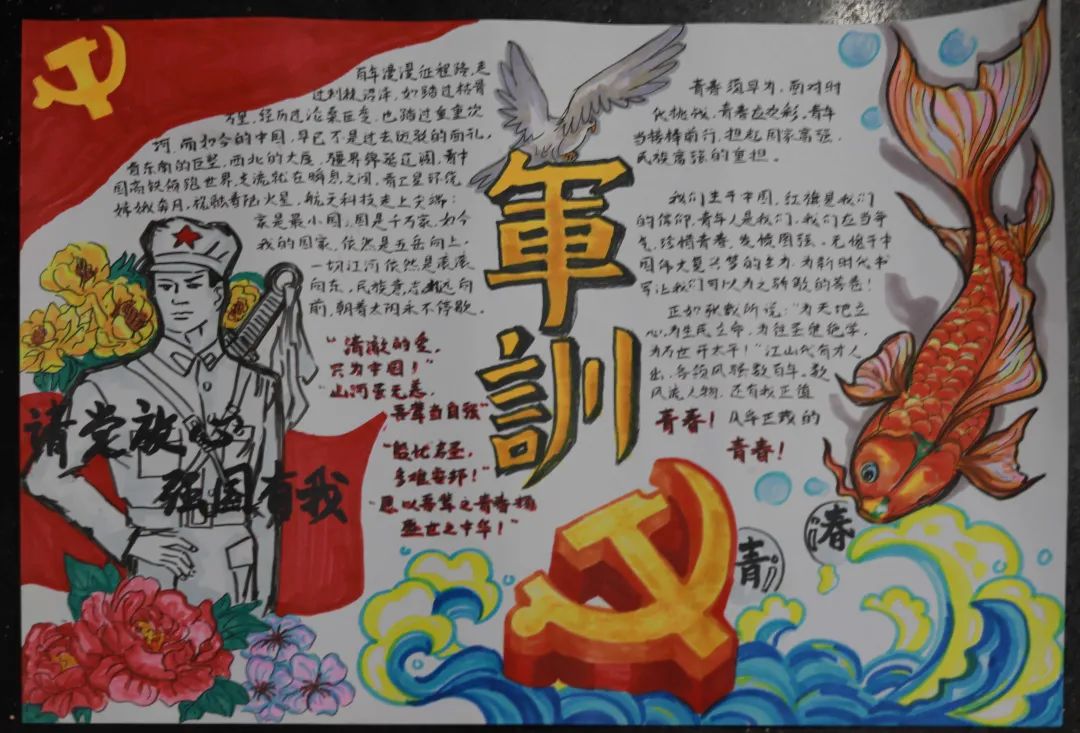 百年漫漫征程路,走
过荆棘沼泽,如踏过枯骨
万里,经历过沧桑巨变,也踏过重重次
河,而如今的中国,早已不是过去迟钝的面孔,
看东南的巨堑,西北的大厦,疆界绵延辽阔,看中
国高铁俯瞰世界,交流就在瞬息之间,看卫星环绕,
嫦娥奔月,祝融着陆火星,航天科技走上尖端;
家是最小国,国是千万家,如今
我的国家,依然是五岳向上,
一切江河依然是滚滚
向东,民族意志永远向
前,朝着太阳永不停歇。
“清澈的爱,
只为中国!”
“山河虽无恙,
吾辈当自强”
“殷忧启圣,
多难兴邦!”
“愿以吾辈之青春捍
盛世之中华!”
请党放心
强国有我
軍訓
青春须早为,面对时
代挑战,青春应出彩,青年
当接棒前行,担起国家富强,
民族富强的重担。
我们生于中国,红旗是我们
的信仰,青年人是我们,我们应当争
气,珍惜青春,发愤图强,无愧于中
国伟大复兴梦的主力,为新时代书
写让我们可以为之骄傲的答卷!
正如张载所说:“为天地立
心,为生民立命,为往圣继绝学,
为万世开太平!”江山代有才人
出,各领风骚数百年。数
风流人物,还有我正值
青春!风华正茂的
青春!
青春